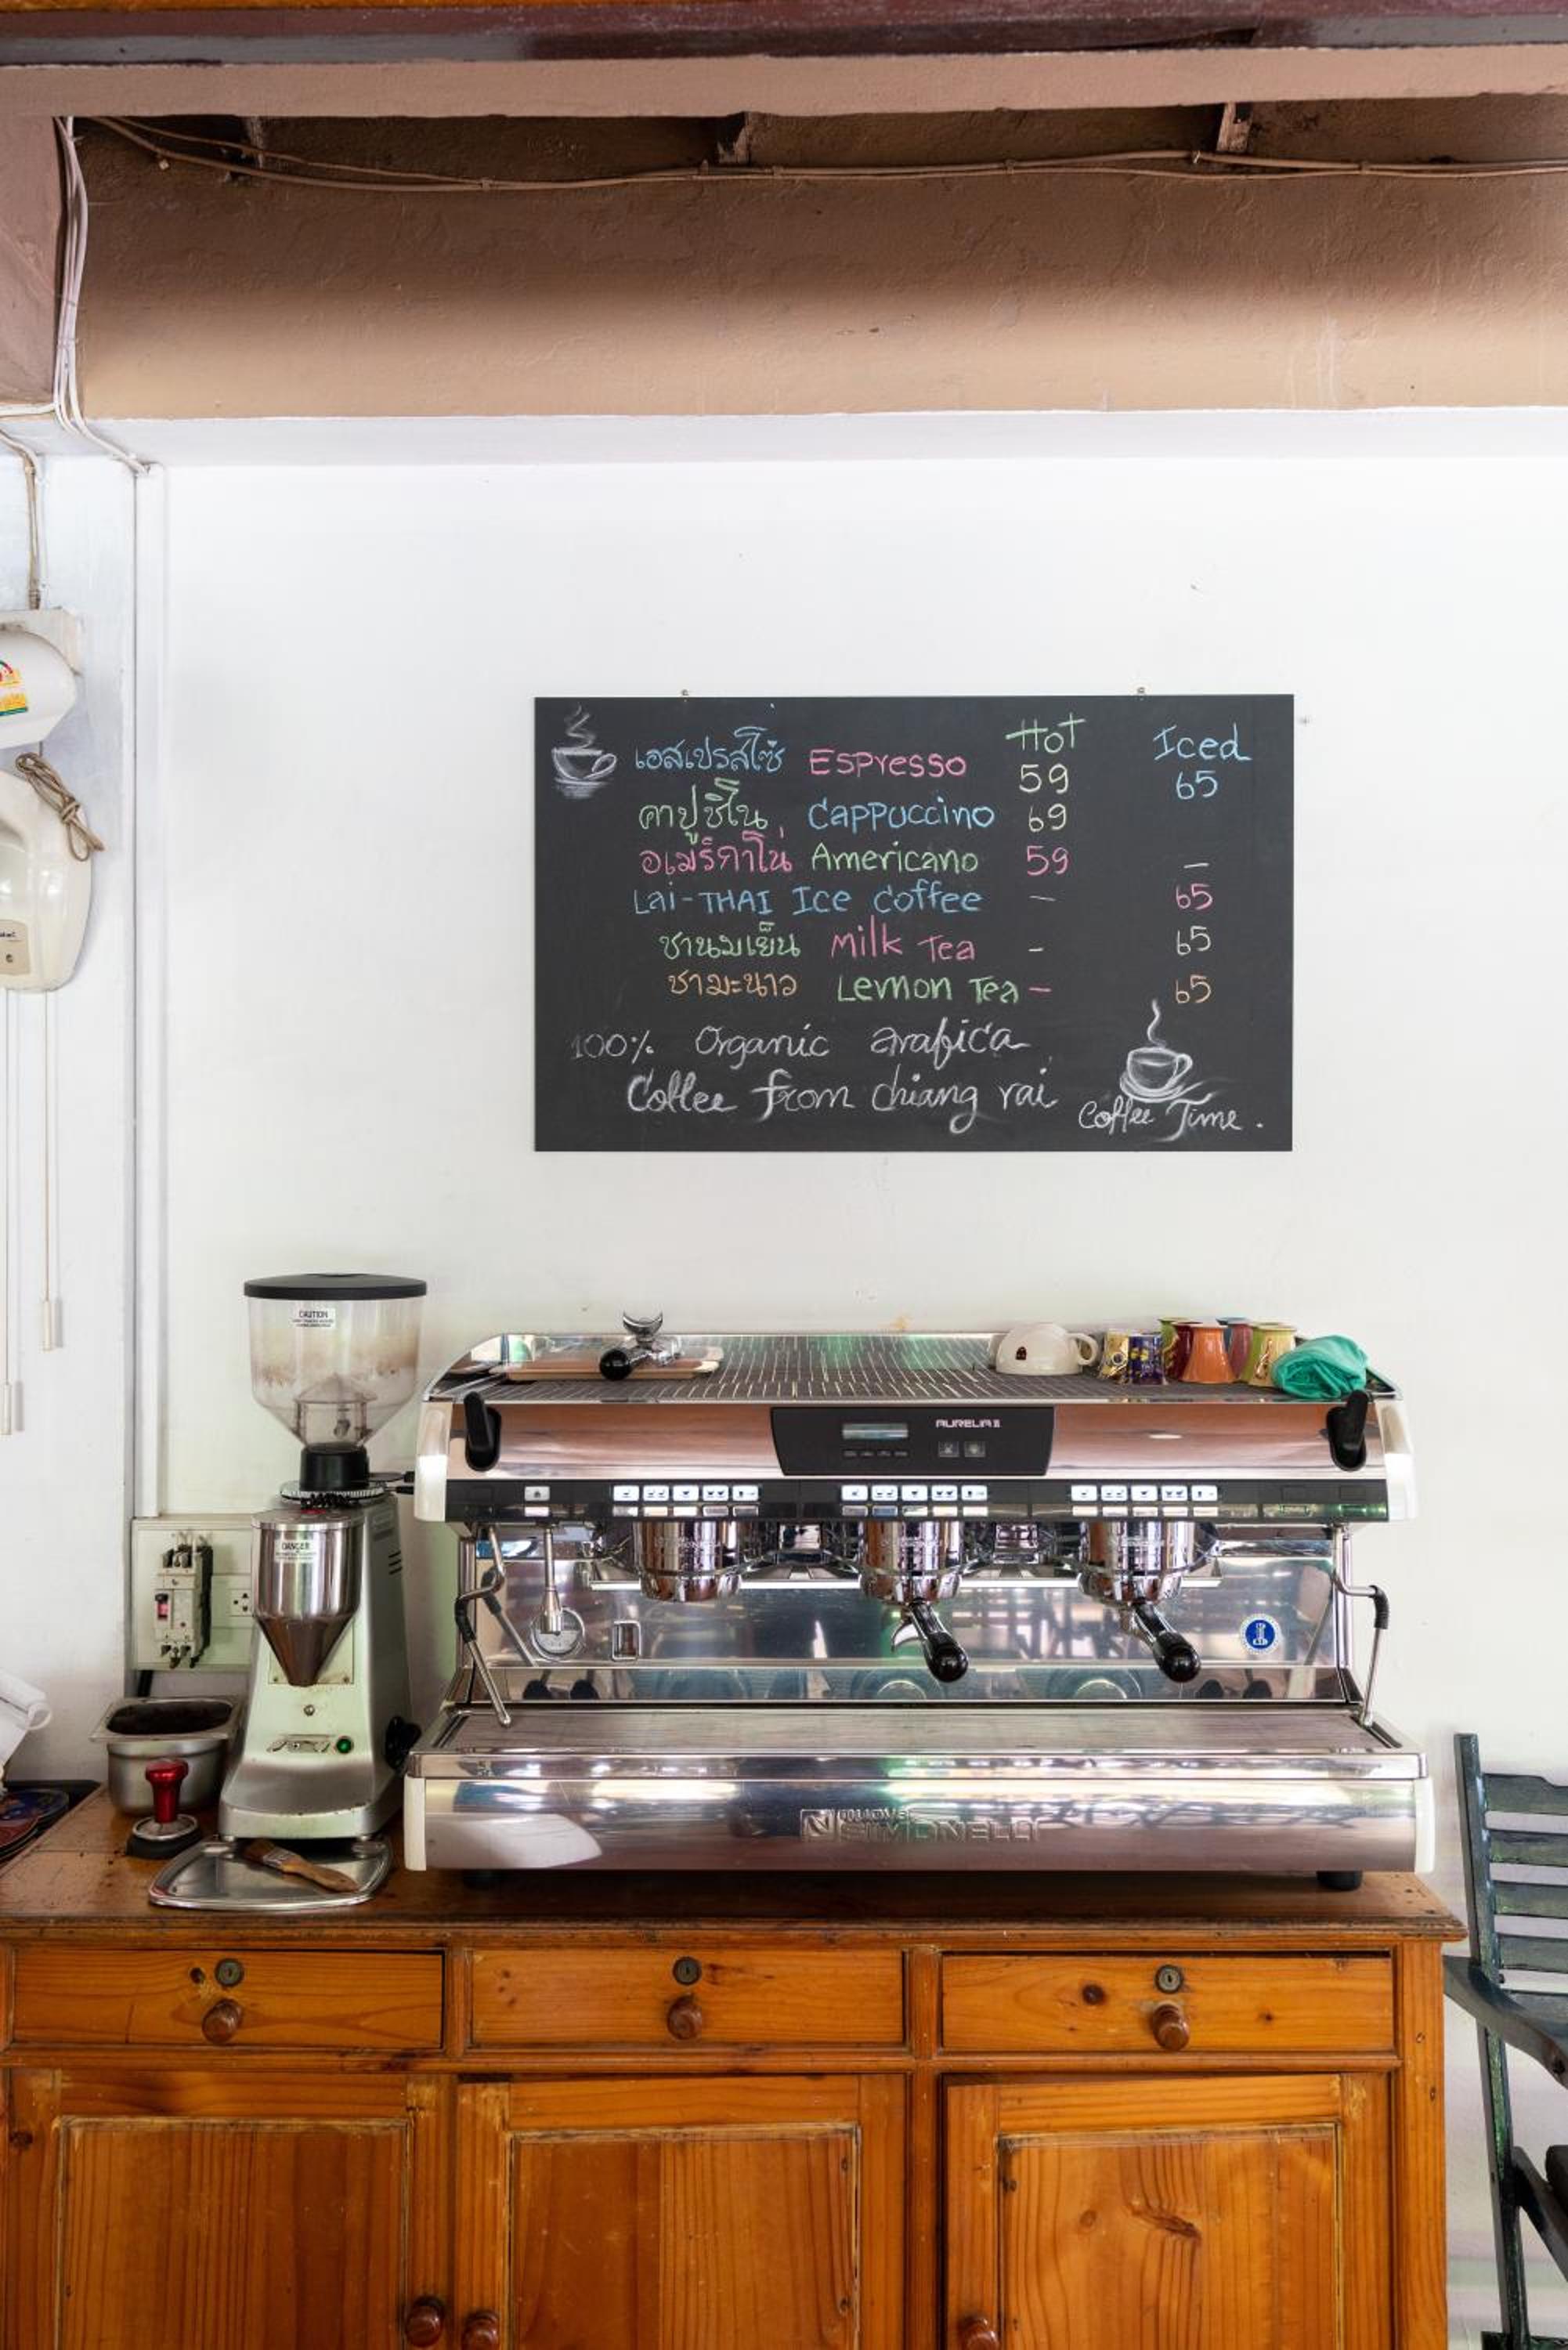 Hot Iced
เอสเปรสโซ่ Espresso 59 65
คาปูชิโน Cappuccino 69
อเมริกาโน่ Americano 59 —
Lai-THAI Ice Coffee — 65
ชานมเย็น Milk Tea - 65
ชามะนาว Lemon Tea — 65
100% Organic arabica
Coffee from chiang rai
Coffee Time.
CAUTION
AURELIA II
DANGER
nuova
SIMONELLI